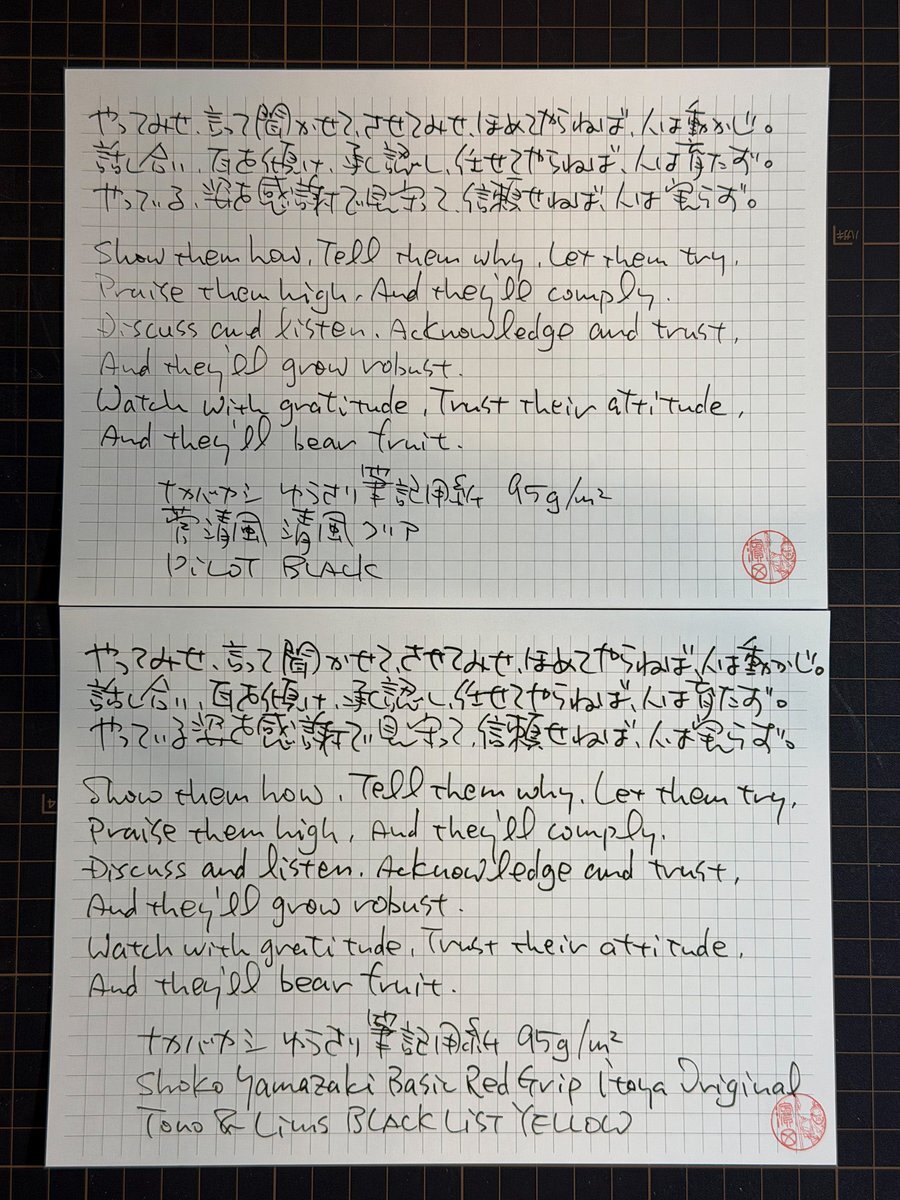 やってみせ、言って聞かせて、させてみせ、ほめてやらねば、人は動かじ。
話し合い、耳を傾け、承認し、任せてやらねば、人は育たず。
やっている、姿を感謝で見守って、信頼せねば、人は実らず。
Show them how, Tell them why, Let them try,
Praise them high, And they'll comply.
Discuss and listen, Acknowledge and trust,
And they'll grow robust.
Watch with gratitude, Trust their attitude,
And they'll bear fruit.
ナカバヤシ ゆうさり筆記用紙 95g/m²
菅清風 清風クリア
PILOT BLACK
やってみせ、言って聞かせて、させてみせ、ほめてやらねば、人は動かじ。
話し合い、耳を傾け、承認し、任せてやらねば、人は育たず。
やっている姿を感謝で見守って、信頼せねば、人は実らず。
Show them how, Tell them why, Let them try,
Praise them high, And they'll comply.
Discuss and listen, Acknowledge and trust,
And they'll grow robust.
Watch with gratitude, Trust their attitude,
And they'll bear fruit.
ナカバヤシ ゆうさり筆記用紙 95g/m²
Shoko Yamazaki Basic Red Grip Itoya Original
Tono & Lims BLACK LIST YELLOW